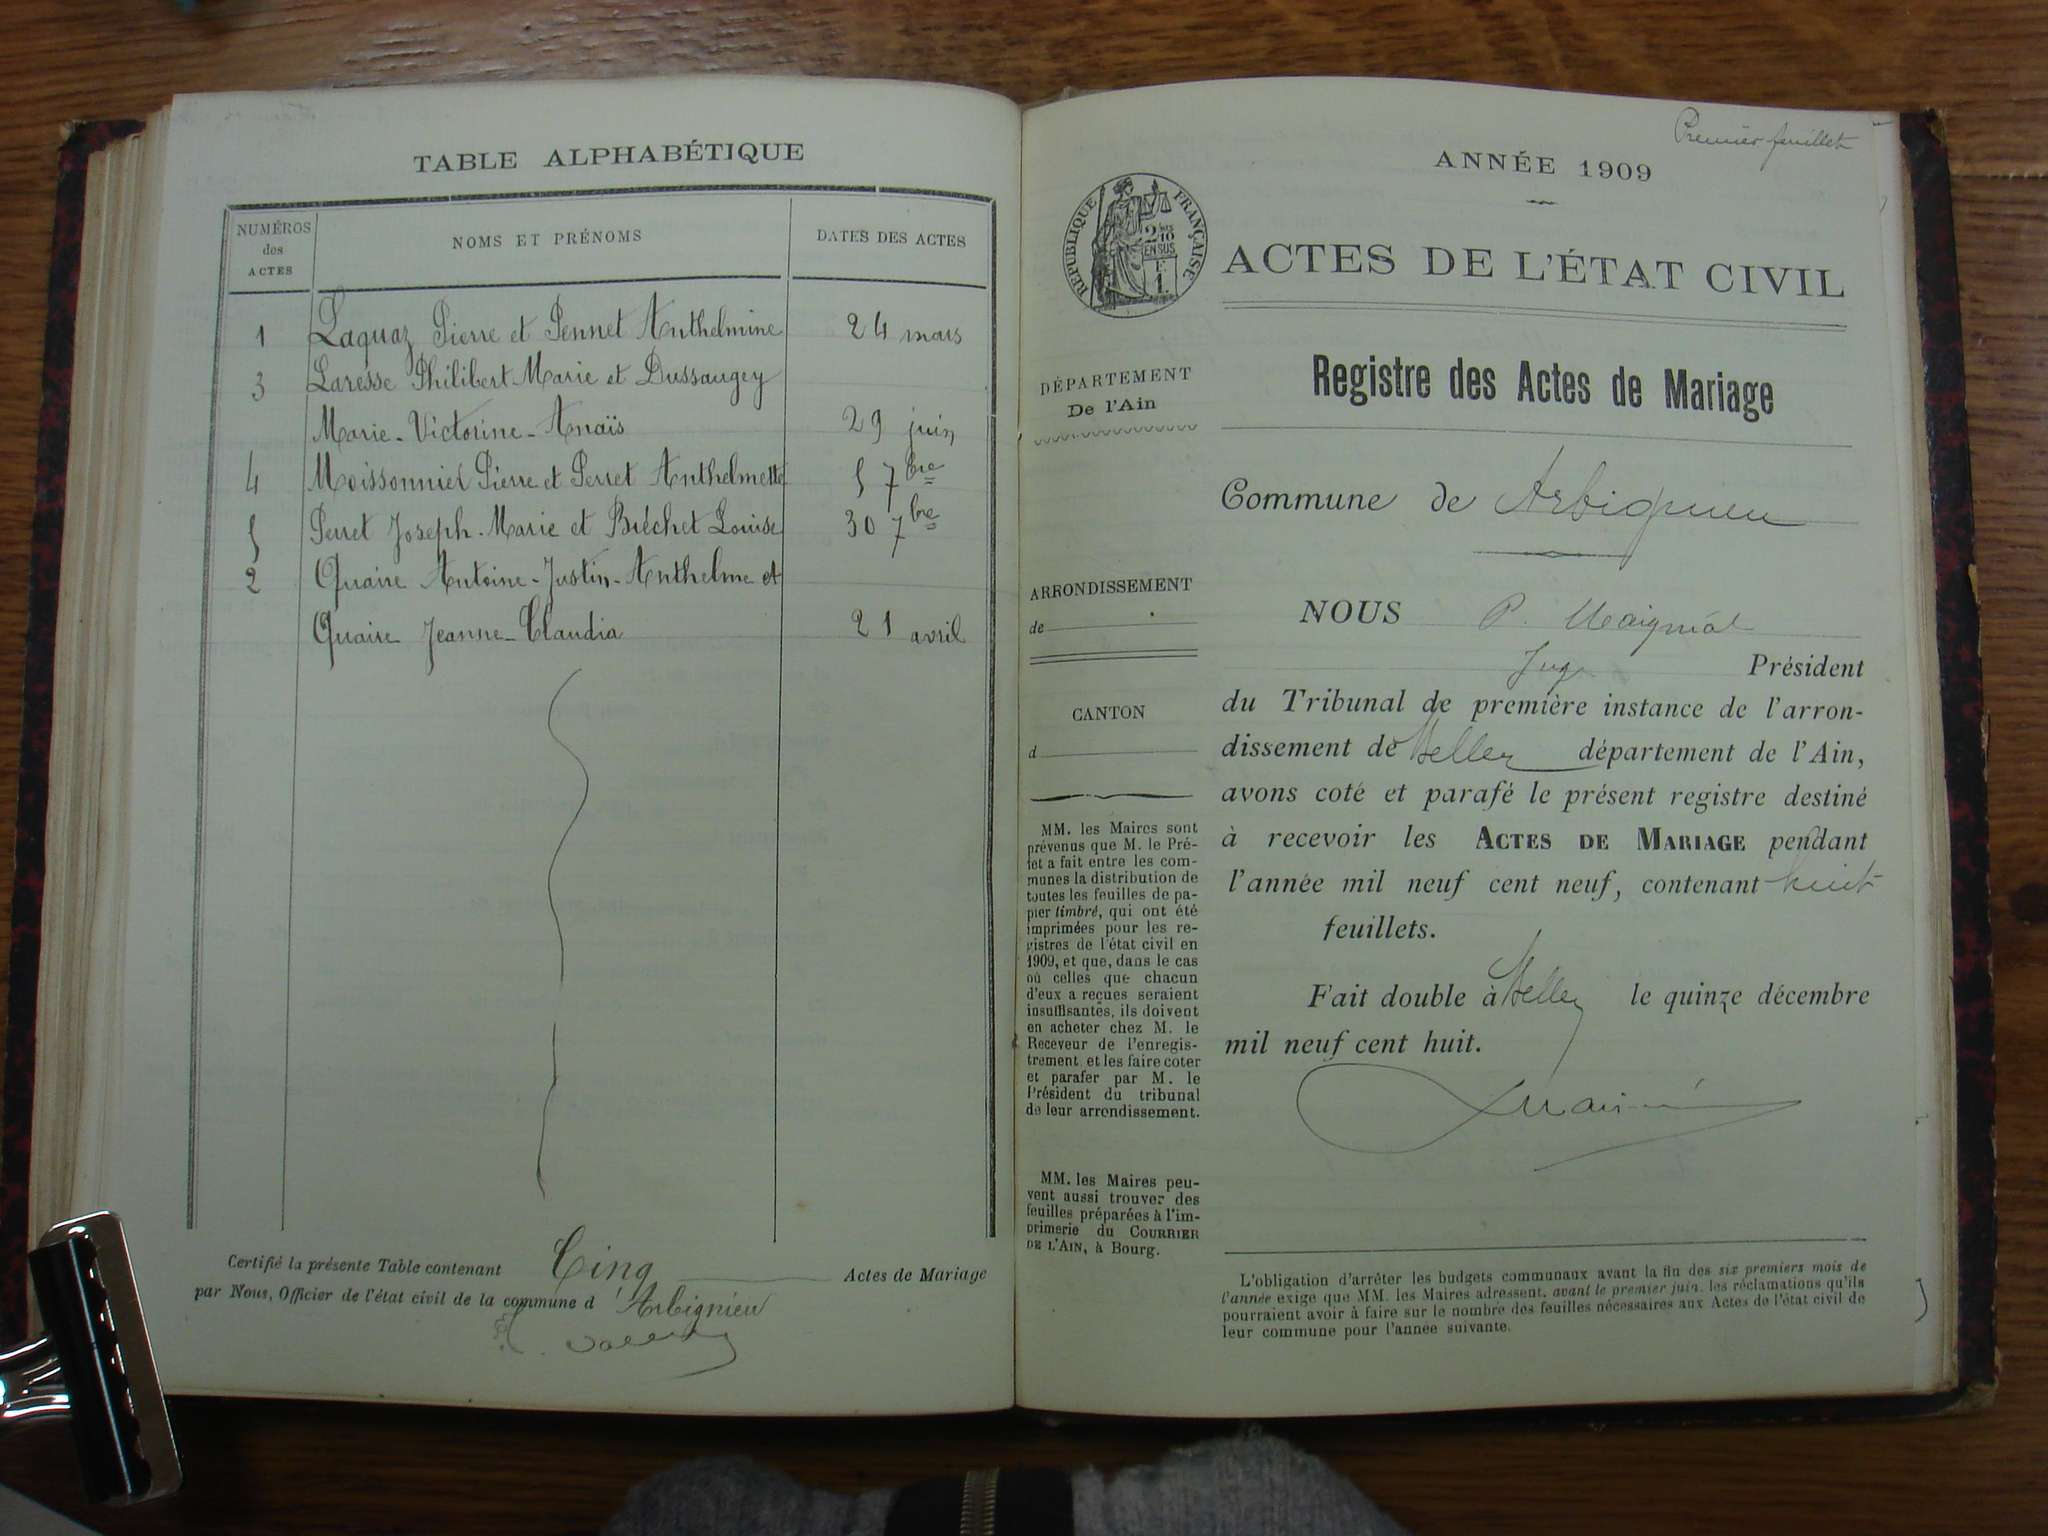 TABLE ALPHABÉTIQUE
NUMÉROS
des
ACTES
NOMS ET PRÉNOMS
DATES DES ACTES
1 Laquaz Pierre et Pennet Anthelmine 24 mars
3 Laresse Philibert Marie et Dussaugey
Marie-Victorine-Anaïs 29 juin
4 Moissonnier Pierre et Perret Anthelmette 5 7bre
5 Perret Joseph-Marie et Bréchet Louise 30 7bre
2 Quaire Antoine-Justin-Anthelme et
Quaire Jeanne-Claudia 21 avril
Certifié la présente Table contenant Cinq Actes de Mariage
par Nous, Officier de l'état civil de la commune d Arbignieu
Premier feuillet
ANNÉE 1909
RÉPUBLIQUE FRANÇAISE
2/10
EN SUS
1
ACTES DE L'ÉTAT CIVIL
DÉPARTEMENT
De l'Ain
Registre des Actes de Mariage
Commune de Arbignieu
ARRONDISSEMENT
de
CANTON
d
MM. les Maires sont
prévenus que M. le Pré-
fet a fait entre les com-
munes la distribution de
toutes les feuilles de pa-
pier timbré, qui ont été
imprimées pour les re-
gistres de l'état civil en
1909, et que, dans le cas
où celles que chacun
d'eux a reçues seraient
insuffisantes, ils doivent
en acheter chez M. le
Receveur de l'enregis-
trement et les faire coter
et parafer par M. le
Président du tribunal
de leur arrondissement.
MM. les Maires peu-
vent aussi trouver des
feuilles préparées à l'im-
primerie du COURRIER
DE L'AIN, à Bourg.
NOUS P.
Juge Président
du Tribunal de première instance de l'arron-
dissement de Belley département de l'Ain,
avons coté et parafé le présent registre destiné
à recevoir les ACTES DE MARIAGE pendant
l'année mil neuf cent neuf, contenant huit
feuillets.
Fait double à Belley le quinze décembre
mil neuf cent huit.
L'obligation d'arrêter les budgets communaux avant la fin des six premiers mois de
l'année exige que MM. les Maires adressent, avant le premier juin, les réclamations qu'ils
pourraient avoir à faire sur le nombre des feuilles nécessaires aux Actes de l'état civil de
leur commune pour l'année suivante.